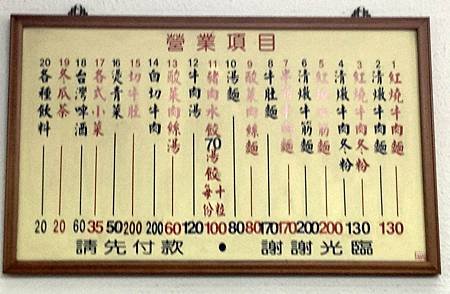 營業項目
1 紅燒牛肉麵 130
2 清燉牛肉麵
3 紅燒牛肉冬粉 130
4 清燉牛肉冬粉
5 紅燒牛筋麵 200
6 清燉牛筋麵 200
7 麵 170
8 牛肚麵 170
9 酸菜肉絲麵 80
10 湯麵 80
11 豬肉水餃70湯餃每份十粒 100
12 牛肉湯 120
13 酸菜肉絲湯 60
14 白切牛肉 200
15 切牛肚 200
16 燙青菜 50
17 各式小菜 35
18 台灣啤酒 60
19 冬瓜茶 20
20 各種飲料 20
請先付款 ● 謝謝光臨